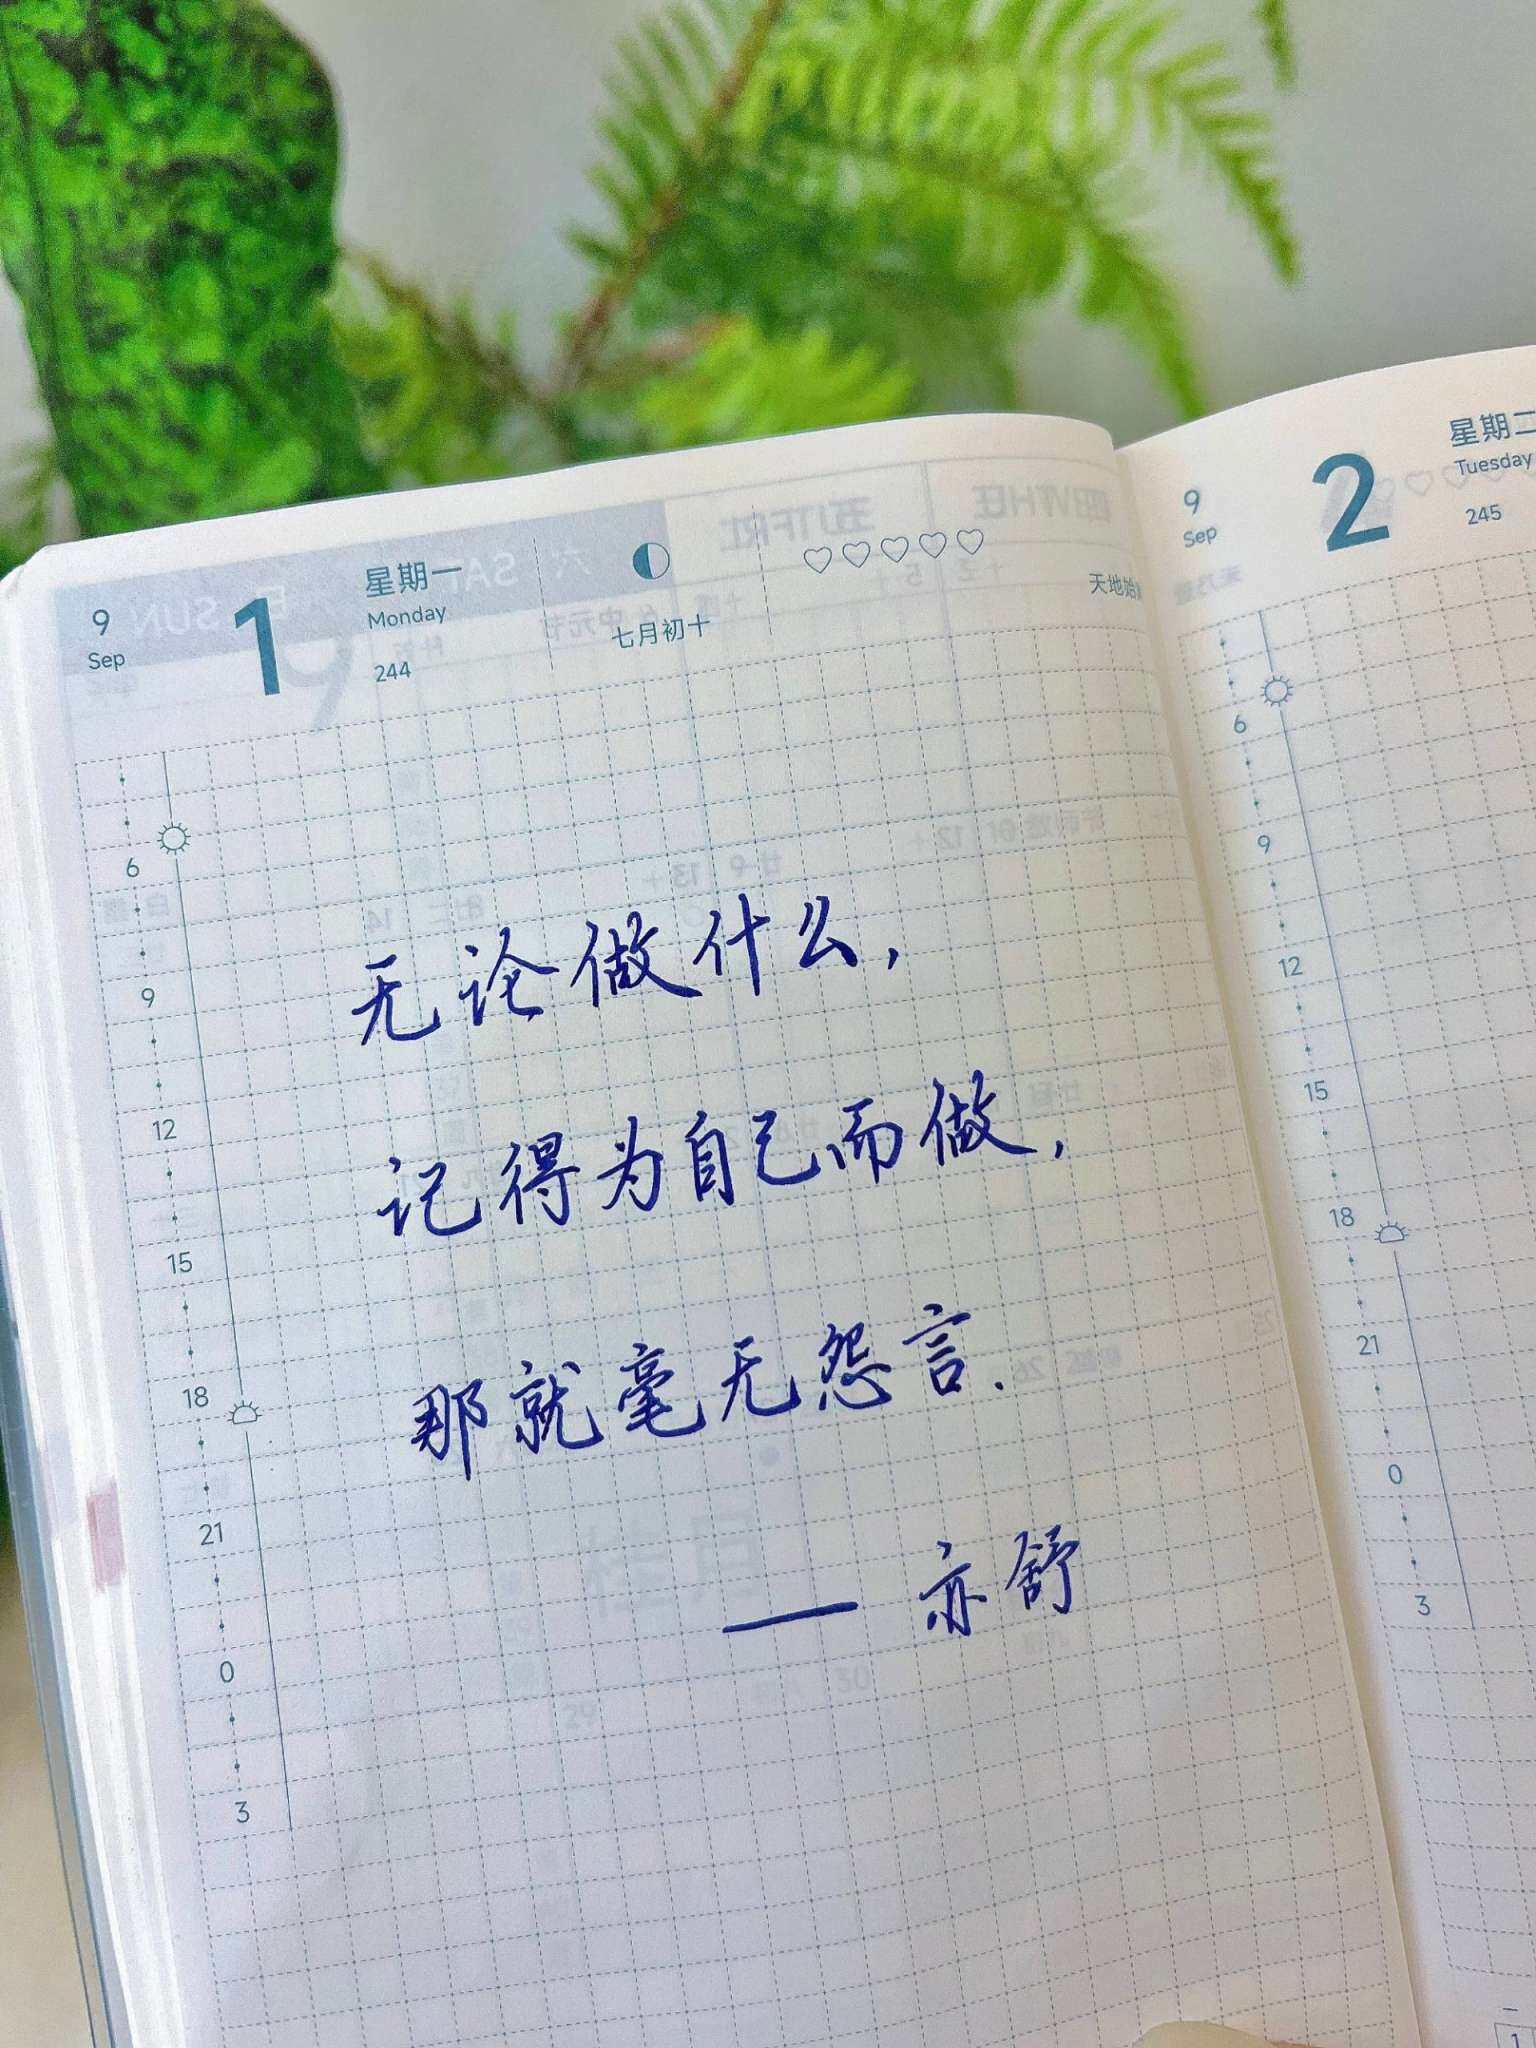 9
Sep
1
星期一
Monday
244
七月初十
天地始
6
9
12
15
18
21
0
3
无论做什么,
记得为自己而做,
那就毫无怨言.
—— 亦舒
9
Sep
2
星期二
Tuesday
245
6
9
12
15
18
21
0
3
1